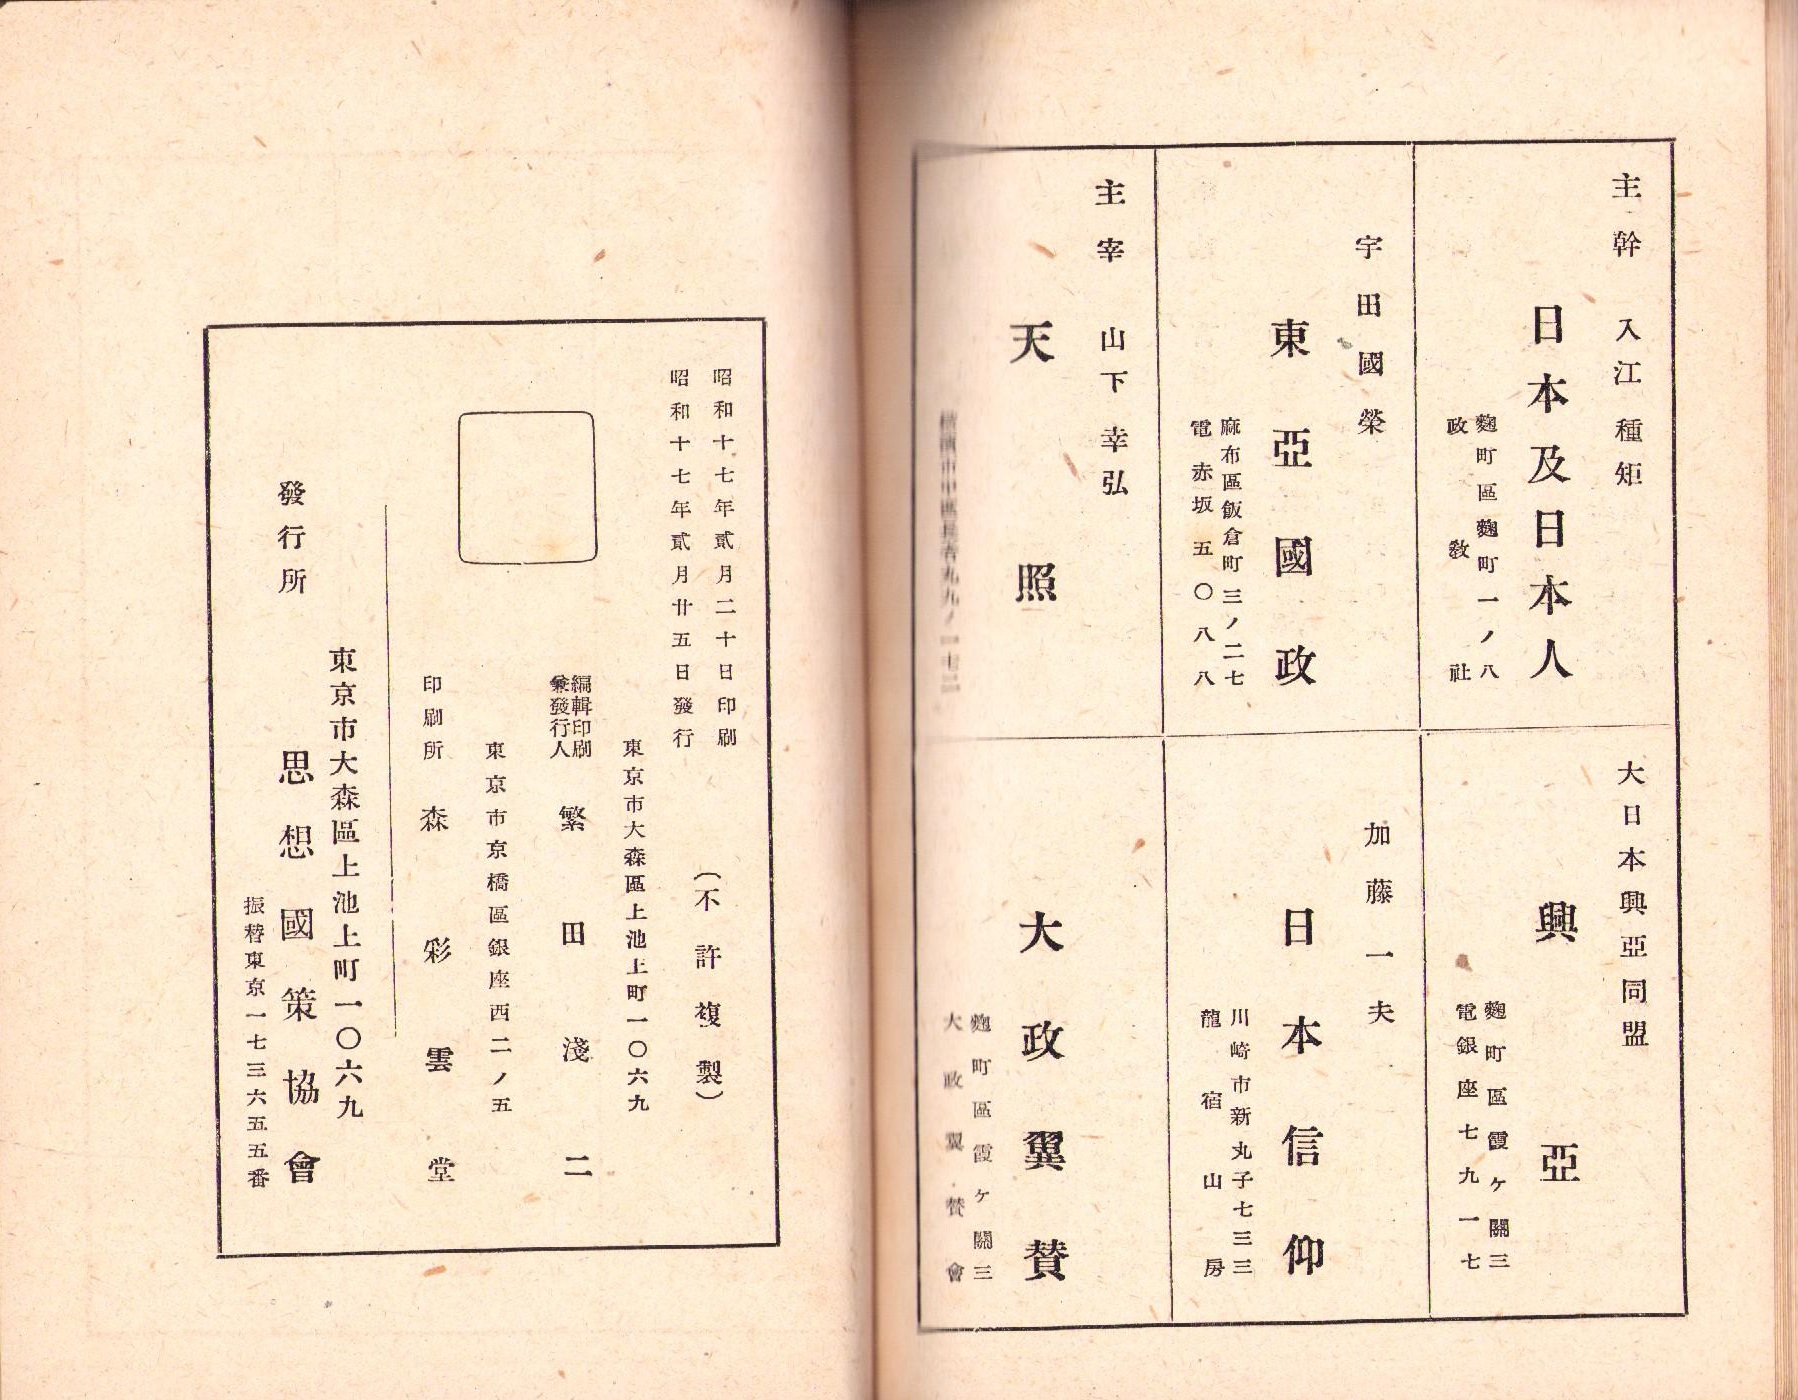 主幹 入江種矩
日本及日本人
麴町區麴町一ノ八
政敎社
宇田國榮
東亞國政
麻布區飯倉町三ノ二七
電赤坂五〇八八
主宰 山下幸弘
天照
大日本興亞同盟
興亞
麴町區霞ヶ關三
電銀座七九一七
加藤一夫
日本信仰
川崎市新丸子七三三
龍宿山房
大政翼贊
麴町區霞ヶ關三
大政翼贊會
昭和十七年貳月二十日印刷
昭和十七年貳月廿五日發行
（不許複製）
東京市大森區上池上町一〇六九
編輯印刷
兼發行人
繁田淺二
東京市京橋區銀座西二ノ五
印刷所 森彩雲堂
東京市大森區上池上町一〇六九
發行所 思想國策協會
振替東京一七三六五五番